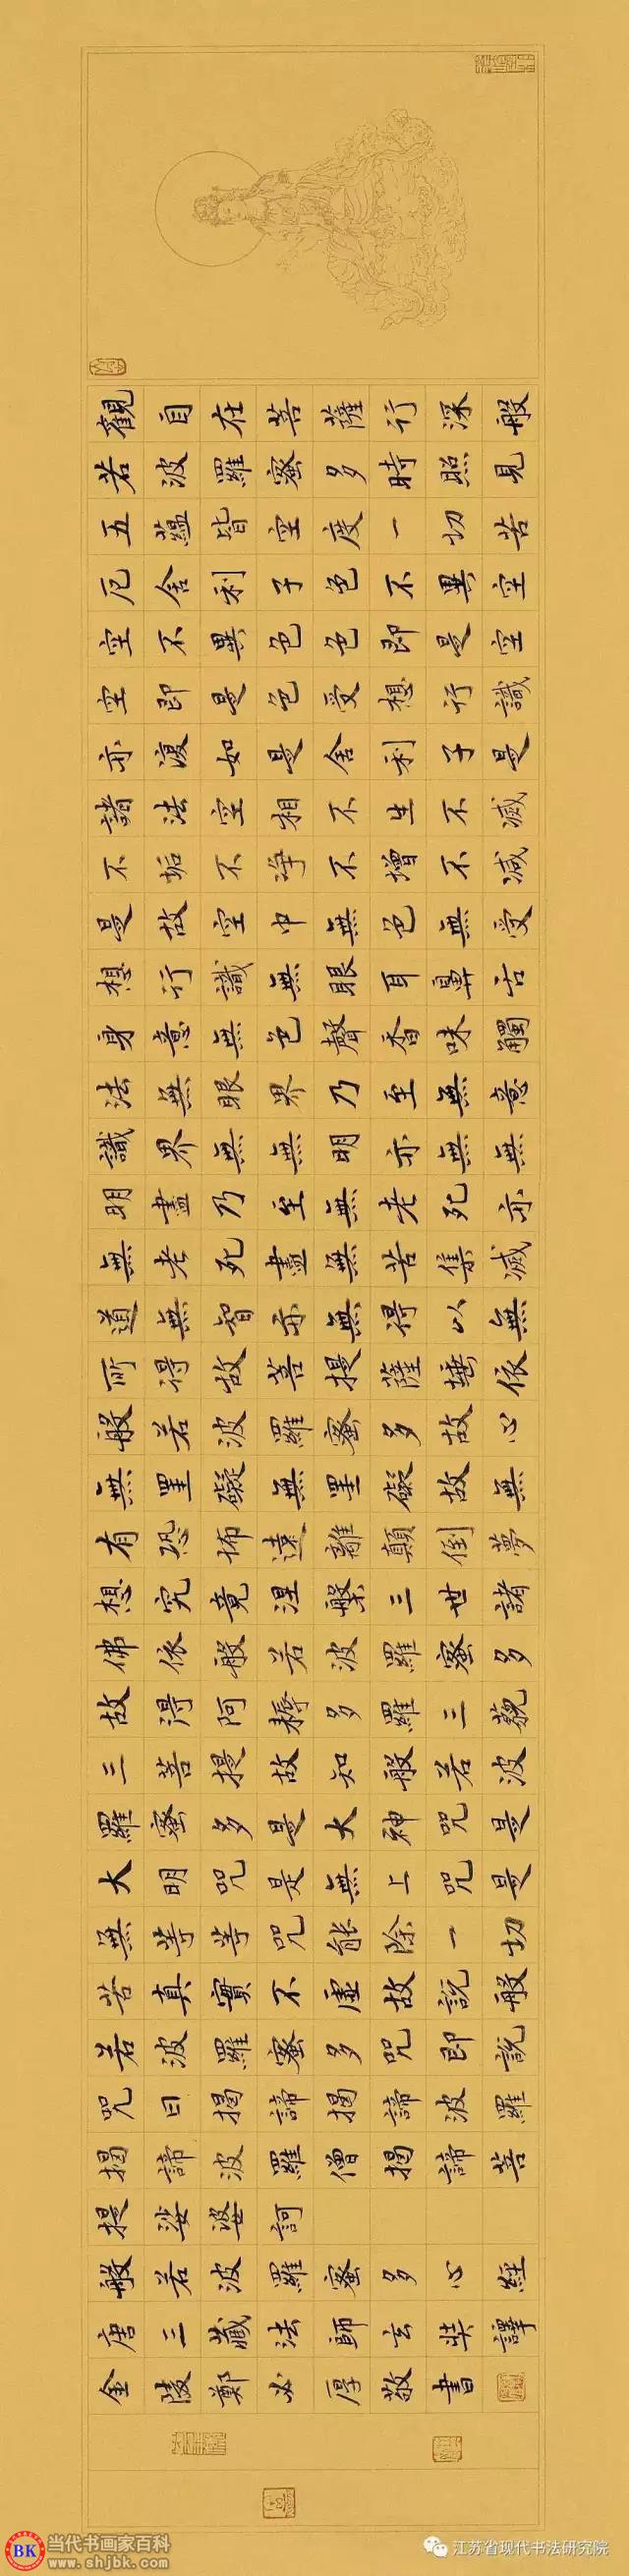 觀自在菩薩行深般
若波羅蜜多時照見
五蘊皆空度一切苦
厄舍利子色不異空
空不異色色即是空
空即是色受想行識
亦復如是舍利子是
諸法空相不生不滅
不垢不净不增不減
是故空中無色無受
想行識無眼耳鼻舌
身意無色聲香味觸
法無眼界乃至無意
識界無無明亦無無
明盡乃至無老死亦
無老死盡無苦集滅
道無智亦無得以無
所得故菩提薩埵依
般若波羅蜜多故心
無罣礙無罣礙故無
有恐怖遠離顛倒夢
想究竟涅槃三世諸
佛依般若波羅蜜多
故得阿耨多羅三藐
三菩提故知般若波
羅蜜多是大神咒是
大明咒是無上咒是
無等等咒能除一切
苦真實不虛故說般
若波羅蜜多咒即說
咒曰揭諦揭諦波羅
揭諦波羅僧揭諦菩
提娑婆訶
般若波羅蜜多心經
唐三藏法師玄奘譯
金陵鄭必厚敬書
BK 当代书画家百科
www.shjbk.com
江苏省现代书法研究院